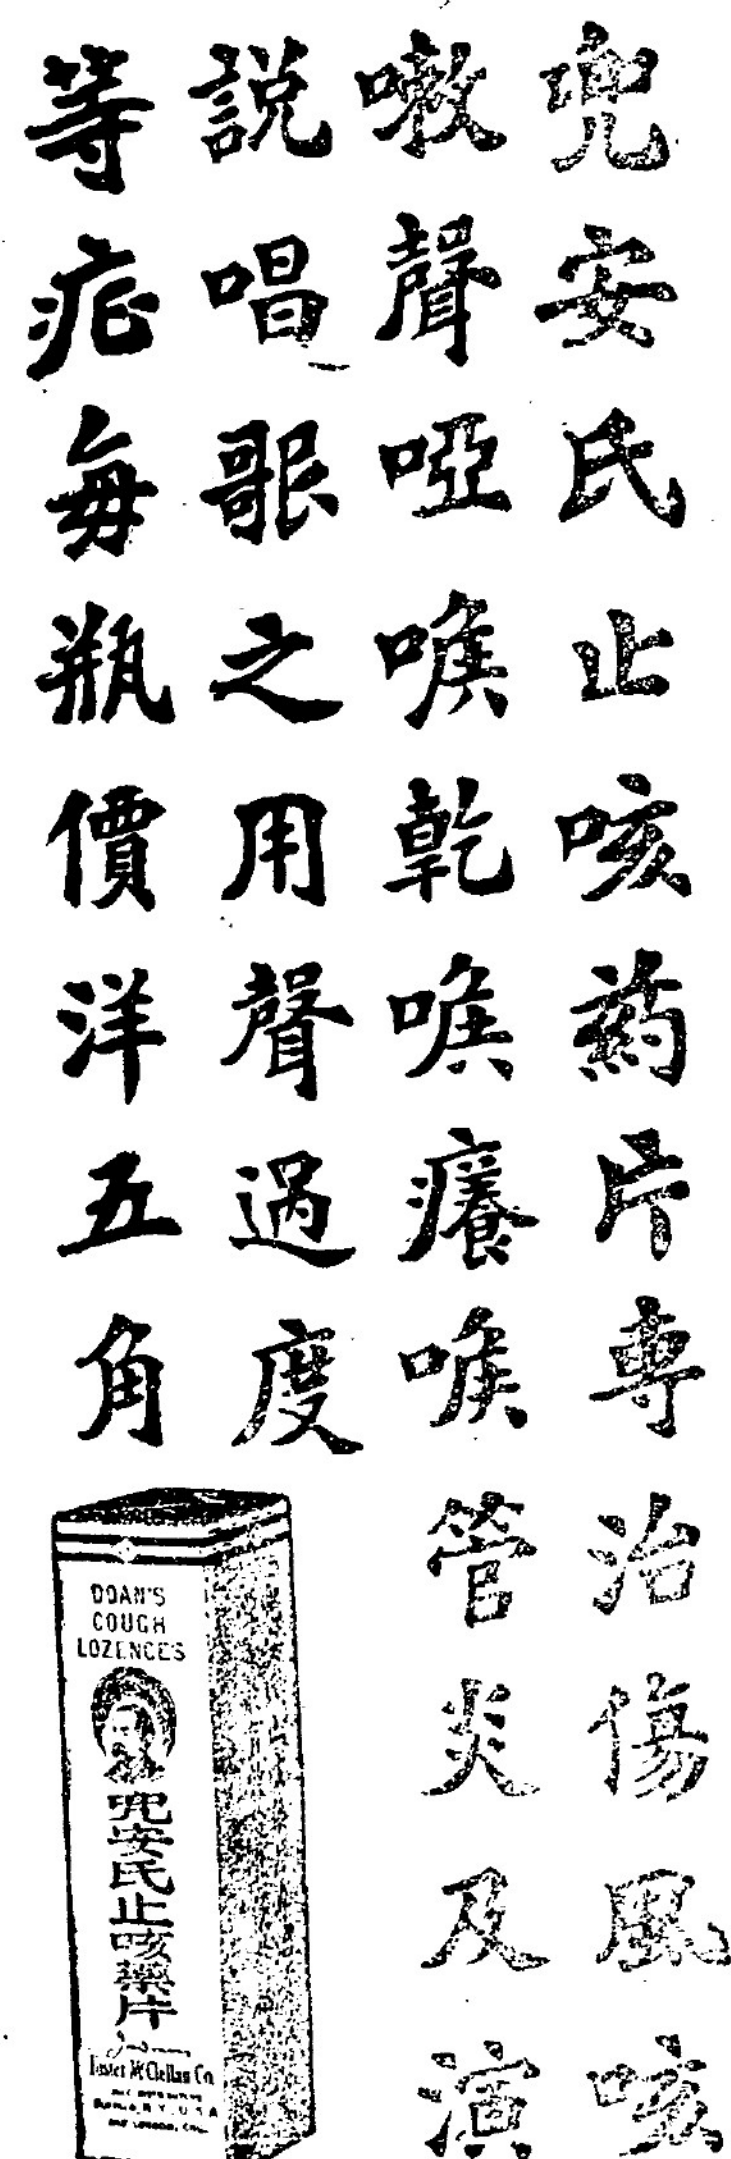 兜安氏止咳葯片專治傷風咳
嗽聲啞喉乾喉癢喉管炎及演
説唱歌之用聲過度
等症每瓶價洋五角
DOAN'S
COUGH
LOZENGES
兜安氏止咳藥片
Foster McClellan Co.
BUFFALO, N.Y., U.S.A.